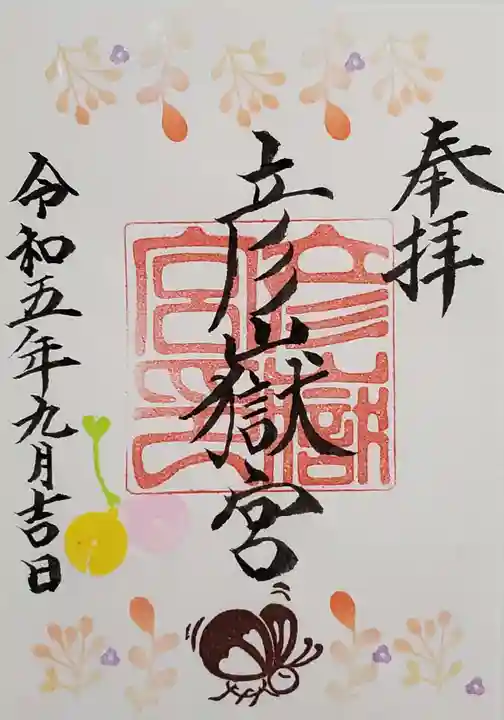 奉拝
彦嶽宮
彦嶽
宮印
令和五年九月吉日